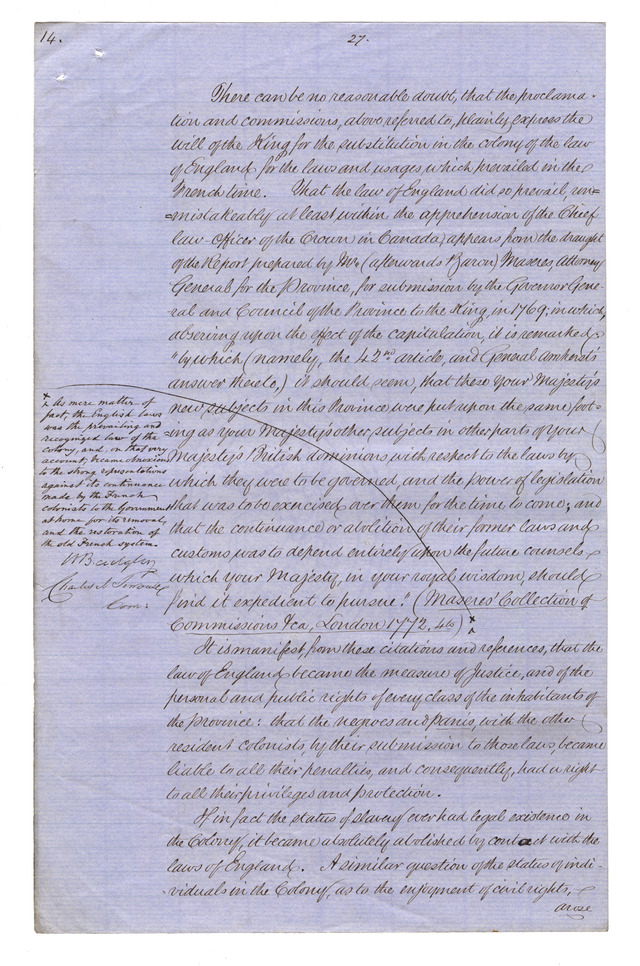 14.
27.
There can be no reasonable doubt, that the proclama-
tion and commissions, above referred to, plainly express the
will of the King for the substitution in the colony of the law
of England for the laws and usages, which prevailed in the
French time. That the law of England did so prevail, un=
=mistakeably at least within the apprehension of the Chief
law-officer of the Crown in Canada, appears from the draught
of the Report prepared by Mr. (afterwards Baron) Maseres, Attorney
General for the Province, for submission by the Governor Gene-
ral and Council of the Province to the King, in 1769, in which,
observing upon the effect of the capitulation, it is remarked
"by which (namely, the 42nd article, and General Amherst's
answer thereto,) it should seem, that these Your Majesty's
new subjects in this Province were put upon the same foot-
ing as your Majesty's other subjects in other parts of Your
Majesty's British dominions with respect to the laws by
which they were to be governed, and the power of legislation
that was to be exercised over them for the time to come; and
that the continuance or abolition of their former laws and
customs was to depend entirely upon the future counsels
which your Majesty, in your royal wisdom, should
find it expedient to pursue." (Maseres' Collection of
Commissions &ca, London 1772. 46) x
x As mere matter of
fact, the English laws
was the prevailing and
recognized law of the
colony, and, on that very
account, became obnoxious
to the strong representations
against its continuance
made by the French
colonists to the Government
at home for its removal,
and the restoration of
the old French system.
W Badgley
Com:
It is manifest, from these citations and references, that the
law of England became the measure of Justice, and of the
personal and public rights of every class of the inhabitants of
the province: that the negroes and panis, with the other
resident colonists, by their submission to those laws, became
liable to all their penalties, and consequently, had a right
to all their privileges and protection.
If in fact the status of slavery ever had legal existence in
the Colony, it became absolutely abolished by contact with the
laws of England. A similar question of the status of indi-
-viduals in the Colony, as to the enjoyment of civil rights,
arose